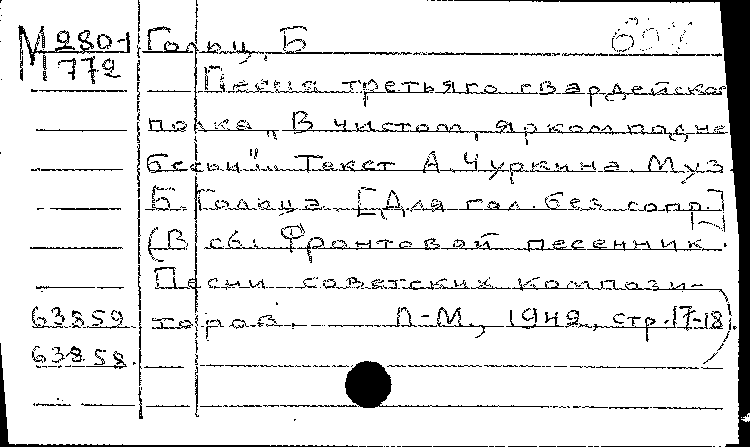 М 280-1 Гольц, Б
М 772
Песня третьяго гвардейско
полка „В чистом, ярком подне
бесьи". Текст А. Чуркина. Муз.
Б. Гольца. [Для гол. без сопр.]
(В сб: Фронтовой песенник.
Песни советских компази-
63859 торов. Л-М., 1942, стр. 17-18).
63858.